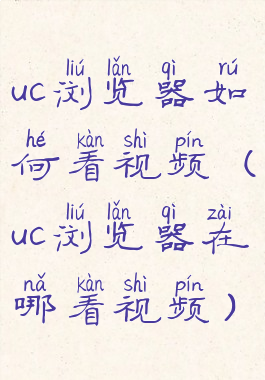 liú lǎn qì rú
uc浏览器如
hé kàn shì pín
何看视频（
liú lǎn qì zài
uc浏览器在
nǎ kàn shì pín
哪看视频）